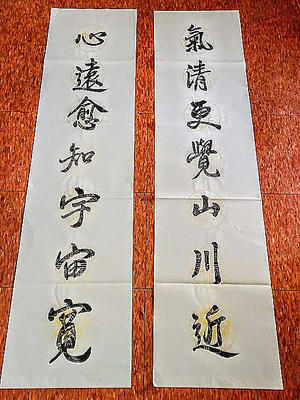 氣清更覺山川近
心遠愈知宇宙寬